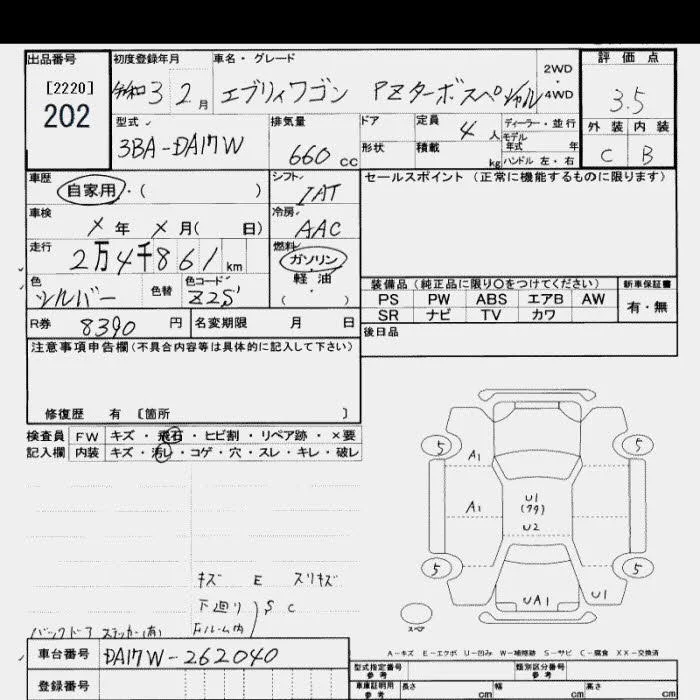 出品番号 初度登録年月 車名・グレード 評価点
[2220] 令和3 2月 エブリイワゴン PZターボスペシャル 2WD・4WD 3.5
202 型式 排気量 ドア 定員 4人 ディーラー・並行 外装 内装
モデル年式 年
3BA-DA17W 660cc 形状 積載 kg ハンドル 左・右 C B
車歴 シフト セールスポイント (正常に機能するものに限ります)
自家用・( ) IAT
車検 冷房
X年 X月( 日) AAC
走行 燃料
2万4千861km ガソリン・軽油・( )
色 色替 色コード 装備品 (純正品に限り〇をつけてください) 新車保証書
シルバー Z2S PS PW ABS エアB AW 有・無
SR ナビ TV カワ
R券 8390円 名変期限 月 日 後日品
注意事項申告欄(不具合内容等は具体的に記入して下さい)
修復歴 有 [箇所 ]
検査員 FW キズ・飛石・ヒビ割・リペア跡・×要
記入欄 内装 キズ・汚レ・コゲ・穴・スレ・キレ・破レ
5 5
A1
A1 U1
(ワク)
U2
5 5
UA1 U1
スペア
キズ E スリキズ
下廻り S C
Fルーム内
バックドア ステッカー(有)
A-キズ E-エクボ U-凹み W-補修跡 S-サビ C-腐食 XX-交換済
車台番号 DA17W-262040
登録番号
型式指定番号 参考 類別区分番号 参考
車庫証明用 参考 長さ cm 幅 cm 高さ cm